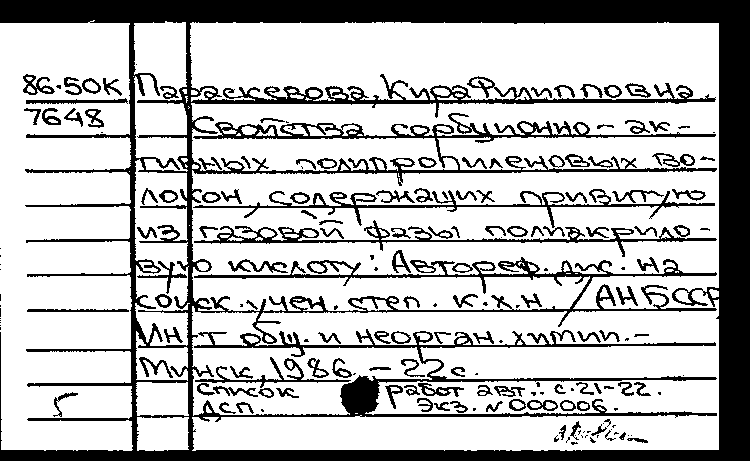 86-50К Параскевова, Кира Филипповна.
7648 Свойства сорбционно-ак-
тивных полипропиленовых во-
локон, содержащих привитую
из газовой фазы полиакрило-
вую кислоту: Автореф. дис. на
соиск. учен. степ. к.х.н. / АН БССР
Ин-т общ. и неорган. химии. -
Минск, 1986. - 22с.
список работ авт.: с.21-22.
5 дсп. Экз. N000006.